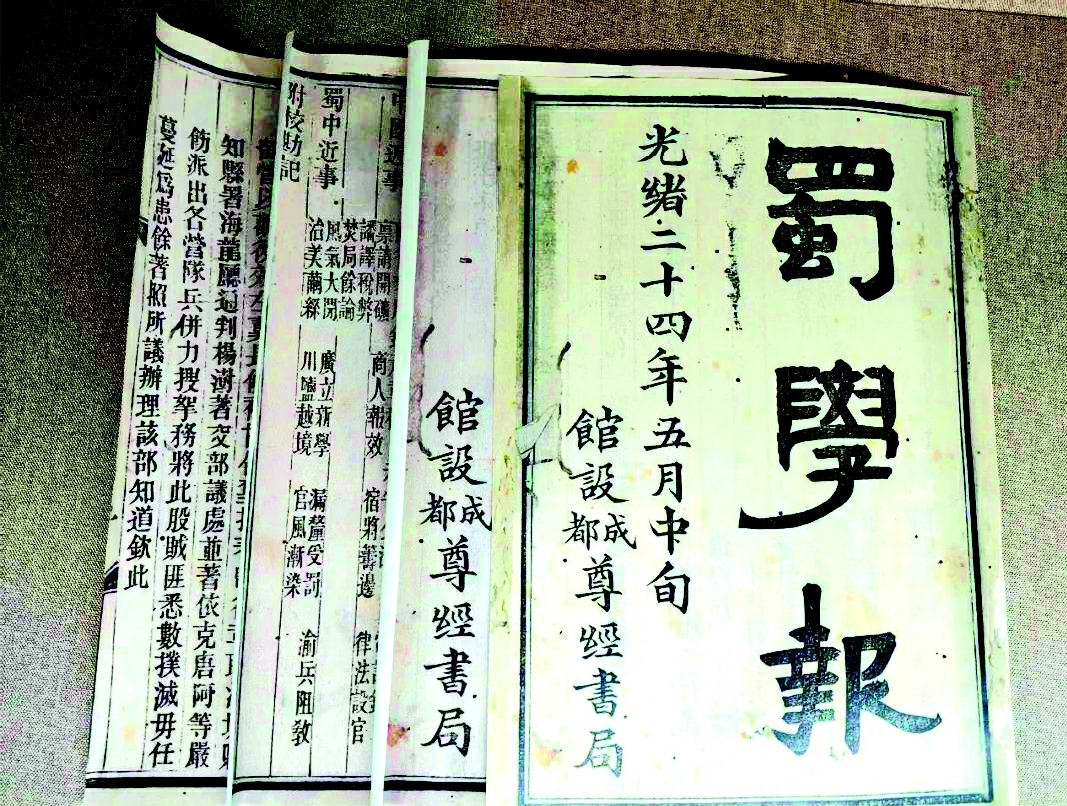 蜀學報
光緒二十四年五月中旬
館設成都尊經書局
館設成都尊經書局
中國近事
稟請開礦 商人報效 宿將籌邊 律法設官
焚局餘論
蜀中近事
風氣大開 廣立新學 漏釐受罰 渝兵阻教
治美繭繅 川鹽越境 官風漸染
附校勘記
知縣署海龍廳通判楊澍著交部議處並著依克唐阿等嚴
飭派出各營隊兵併力搜拏務將此股賊匪悉數撲滅毋任
蔓延爲患餘著照所議辦理該部知道欽此